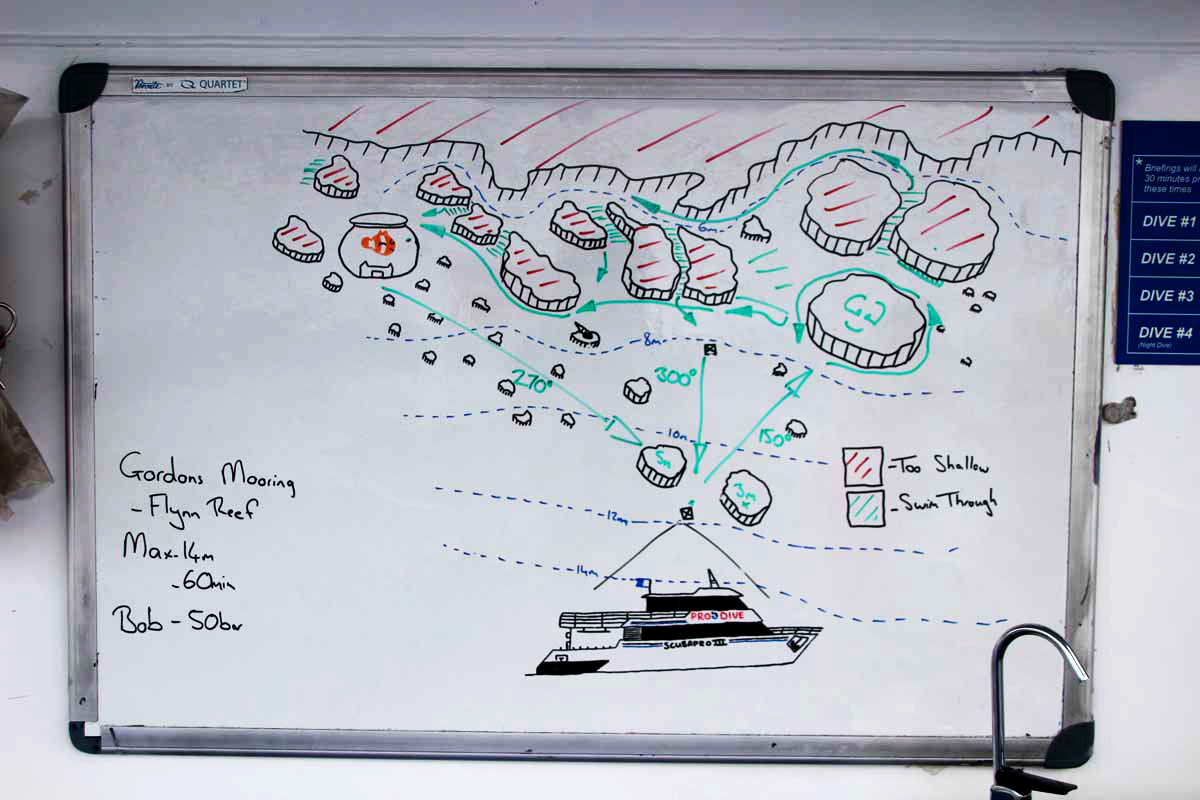 BY QUARTET
6m
8m
300°
270°
10m
150°
5m
3m
x
12m
14m
Too Shallow
Swim Through
Gordons Mooring
- Flynn Reef
Max-14m
-60min
Bob - 50bar
PRO DIVE
SCUBAPRO III
* Briefings will
30 minutes pr
these times
DIVE #1
DIVE #2
DIVE #3
DIVE #4
(Night Dive)